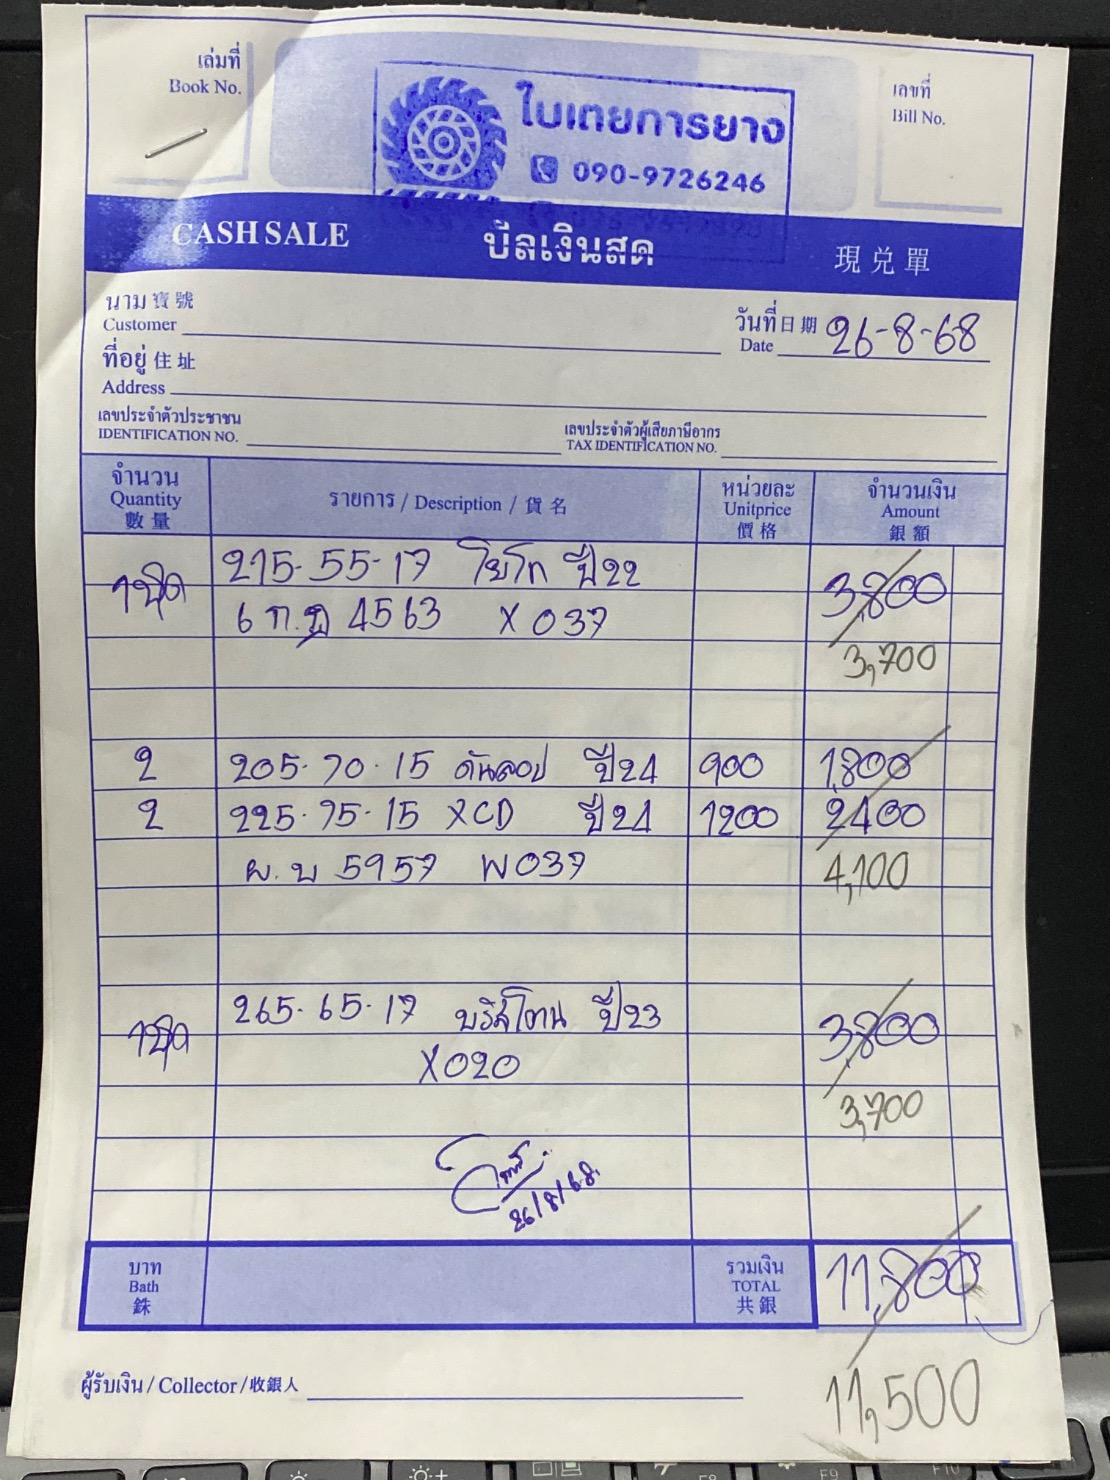 เล่มที่
Book No.
ใบเตยการยาง
090-9726246
เลขที่
Bill No.
CASH SALE บิลเงินสด 現兌單
นาม 寶號
Customer
วันที่ 日期 26-8-68
Date
ที่อยู่ 住址
Address
เลขประจำตัวประชาชน
IDENTIFICATION NO.
เลขประจำตัวผู้เสียภาษีอากร
TAX IDENTIFICATION NO.
จำนวน
Quantity
數量
รายการ / Description / 貨名
หน่วยละ
Unitprice
價格
จำนวนเงิน
Amount
銀額
1ชุด 215-55-17 โยโก ปี22 3,800
6 ก.ฎ 4563 X037
3,700
2 205-70-15 ดันลอป ปี24 900 1,800
2 225-75-15 XCD ปี24 1200 2400
ผ.บ 5957 W037 4,100
1ชุด 265-65-17 ปี23 3,800
X020
3,700
26/8/68.
บาท
Bath
銖
รวมเงิน
TOTAL
共銀
11,800
ผู้รับเงิน / Collector / 收銀人
11,500